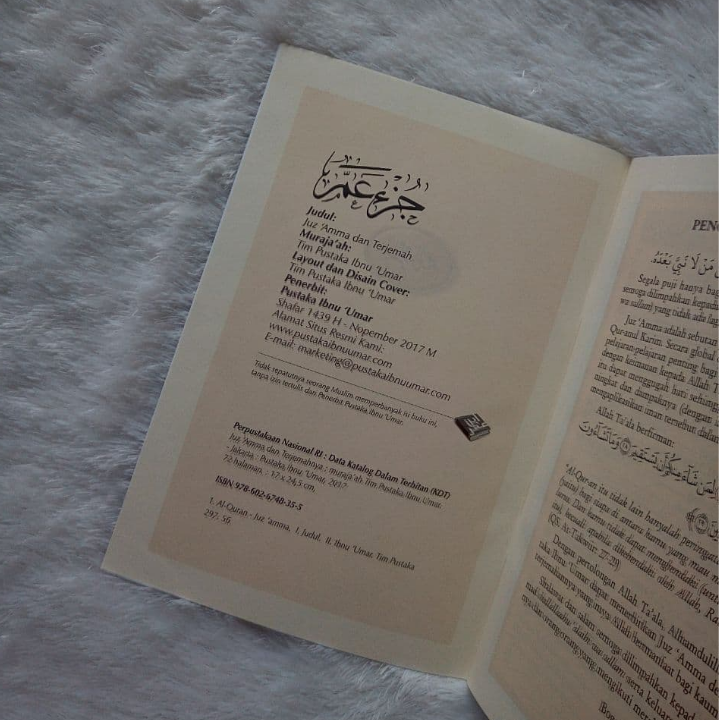 جُزْء عَمَّ
Judul:
Juz 'Amma dan Terjemah
Muraja'ah:
Tim Pustaka Ibnu 'Umar
Layout dan Disain Cover:
Tim Pustaka Ibnu 'Umar
Penerbit:
Pustaka Ibnu 'Umar
Shafar 1439 H - Nopember 2017 M
Alamat Situs Resmi Kami:
www.pustakaibnuumar.com
E-mail: marketing@pustakaibnuumar.com
Tidak sepatutnya seorang Muslim memperbanyak isi buku ini,
tanpa izin tertulis dari Penerbit Pustaka Ibnu 'Umar.
Perpustakaan Nasional RI : Data Katalog Dalam Terbitan (KDT)
Juz 'Amma dan Terjemahnya ; muraja'ah, Tim Pustaka Ibnu 'Umar.
- Jakarta : Pustaka Ibnu 'Umar, 2017.
72 halaman. : 17 x 24,5 cm,
ISBN 978-602-6740-35-5
1. Al-Quran - Juz 'amma. I. Judul. II. Ibnu 'Umar. Tim Pustaka
297. 56
مَنْ لَا نَبِيَّ بَعْدَهُ
Segala puji hanya
semoga dilimpahkan kepada
wa sallam) yang tidak ada lagi
Juz 'Amma adalah sebutan
Qur-anul Karim. Secara global
pelajaran-pelajaran penting bagi
dengan keimanan kepada Allah
itu dapat menggugah hati sehingga
ningkat dan dampaknya (dengan
mengaplikasikan iman tersebut dalam
Allah Ta'ala berfirman:
"Al-Qur-an itu tidak lain hanyalah peringatan
(yaitu) bagi siapa di antara kamu yang mau
lurus. Dan kamu tidak dapat menghendaki
itu) kecuali apabila dikehendaki oleh Allah,
(QS. At-Takwiir: 27-29)
Dengan pertolongan Allah Ta'ala, Alhamdulillah
taka Ibnu 'Umar dapat menerbitkan Juz 'Amma
terjemahannya yang insya Allah bermanfaat bagi kaum
Shalawat dan salam semoga dilimpahkan kepada
mad shallallaahu 'alaihi wa sallam, serta
nya, dan orang-orang yang mengikuti